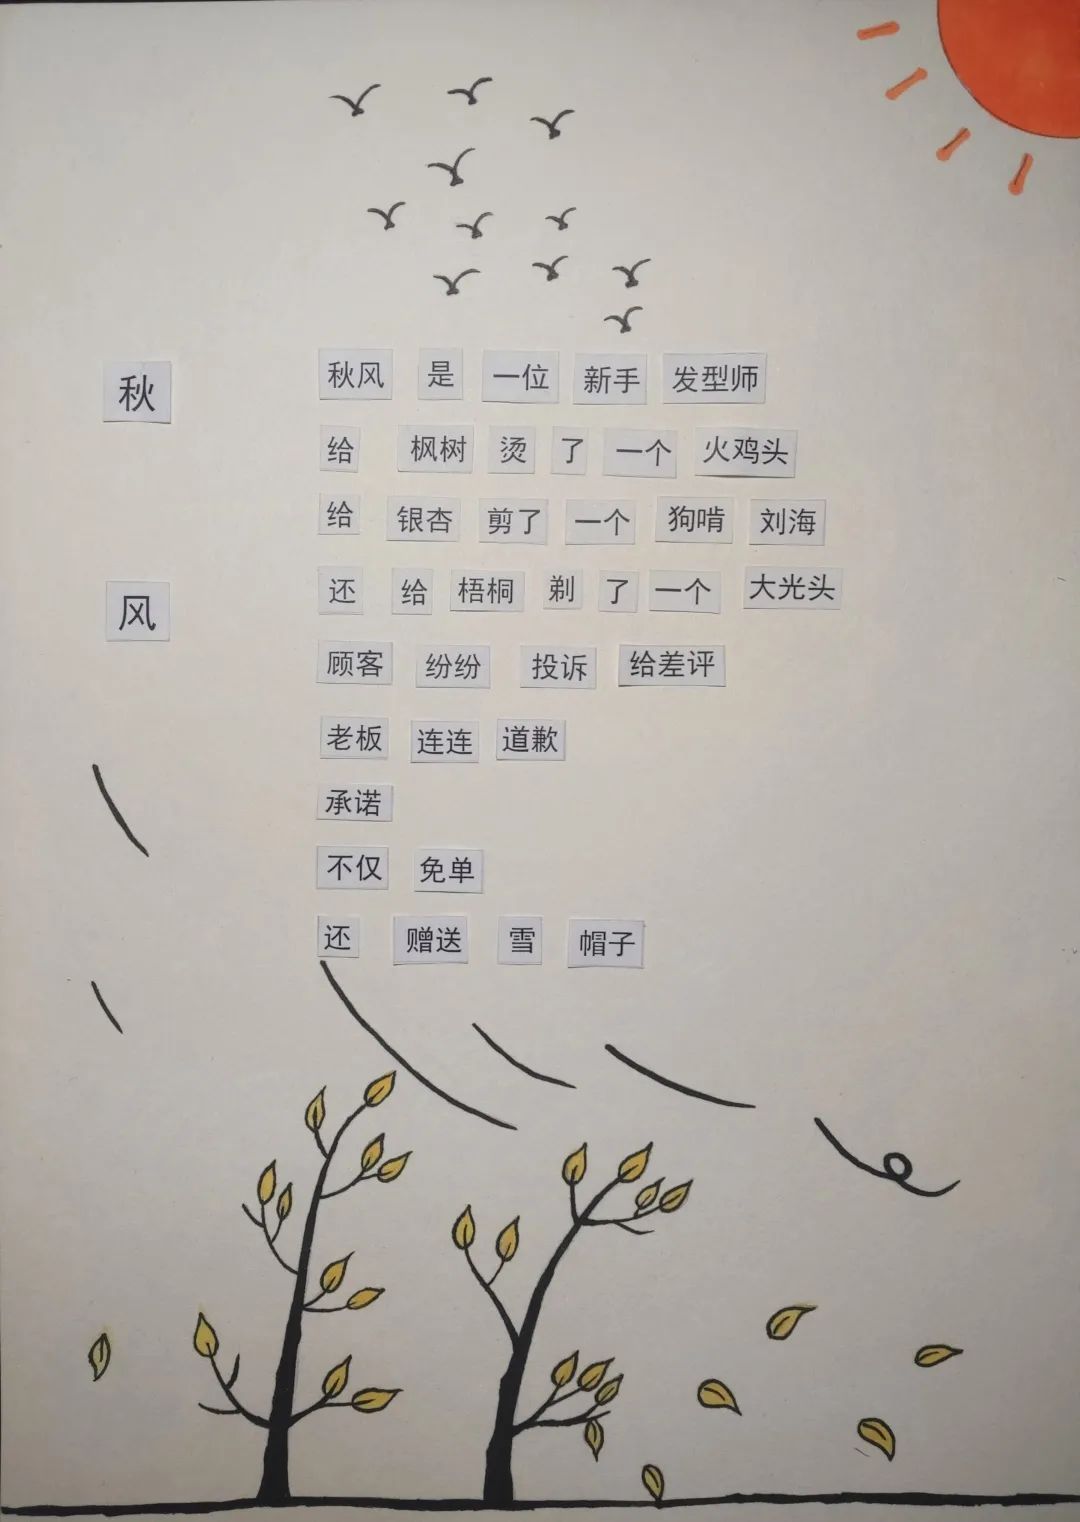 秋风
秋风 是 一位 新手 发型师
给 枫树 烫 了 一个 火鸡头
给 银杏 剪了 一个 狗啃 刘海
还 给 梧桐 剃 了 一个 大光头
顾客 纷纷 投诉 给差评
老板 连连 道歉
承诺
不仅 免单
还 赠送 雪 帽子